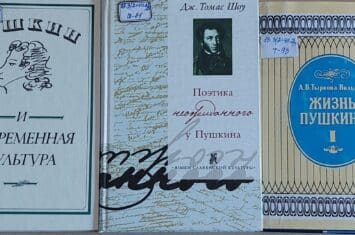 ПУШКИН
И
СОВРЕМЕННАЯ
КУЛЬТУРА
Дж. Томас Шоу
Поэтика
неожиданного
у Пушкина
ЯЗЫКИ СЛАВЯНСКОЙ КУЛЬТУРЫ
А.В.Тыркова-Вильямс
ЖИЗНЬ
ПУШКИНА
I
Т-93